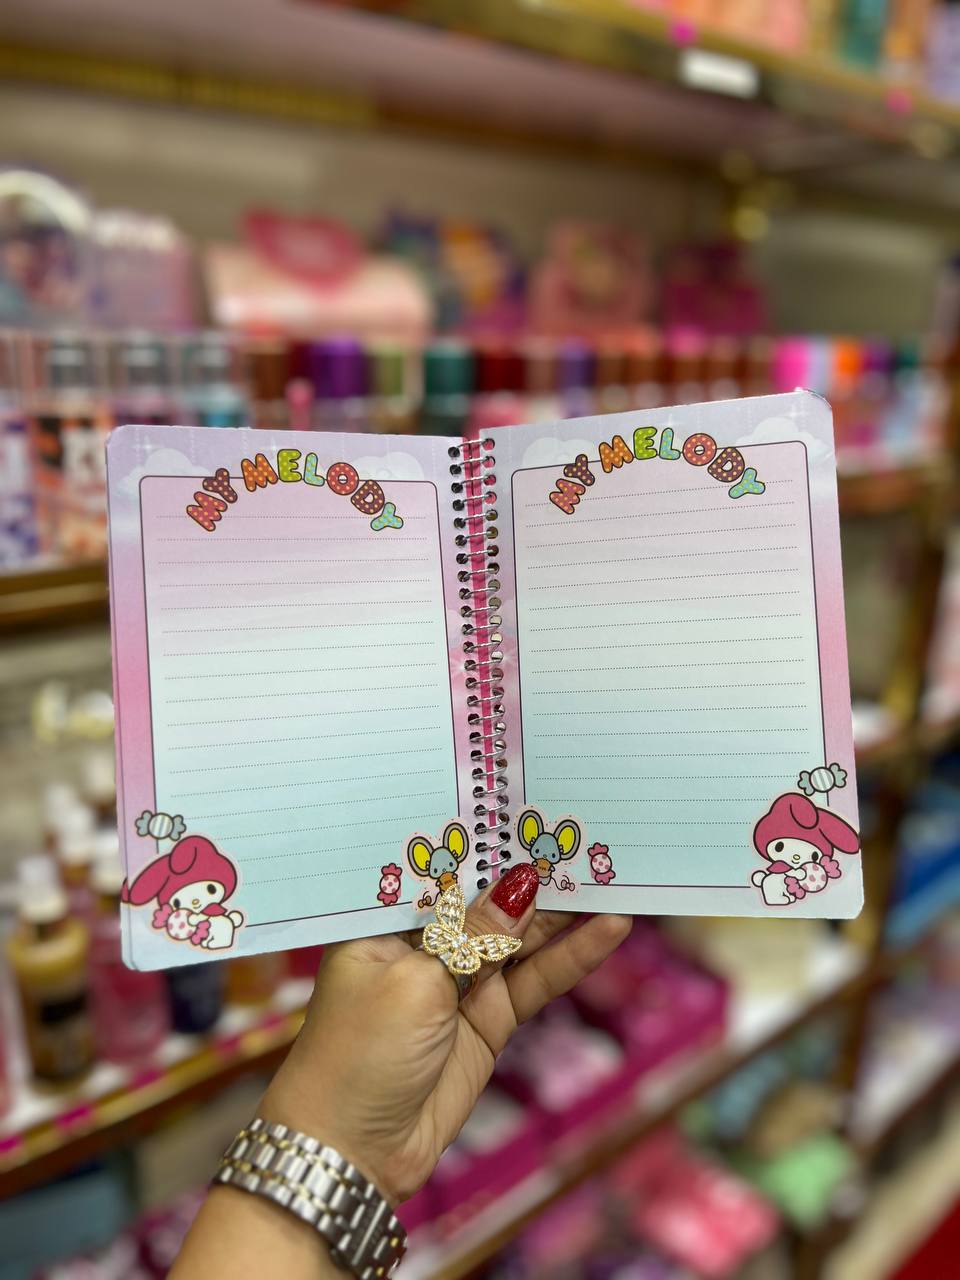 MY MELODY
MY MELODY